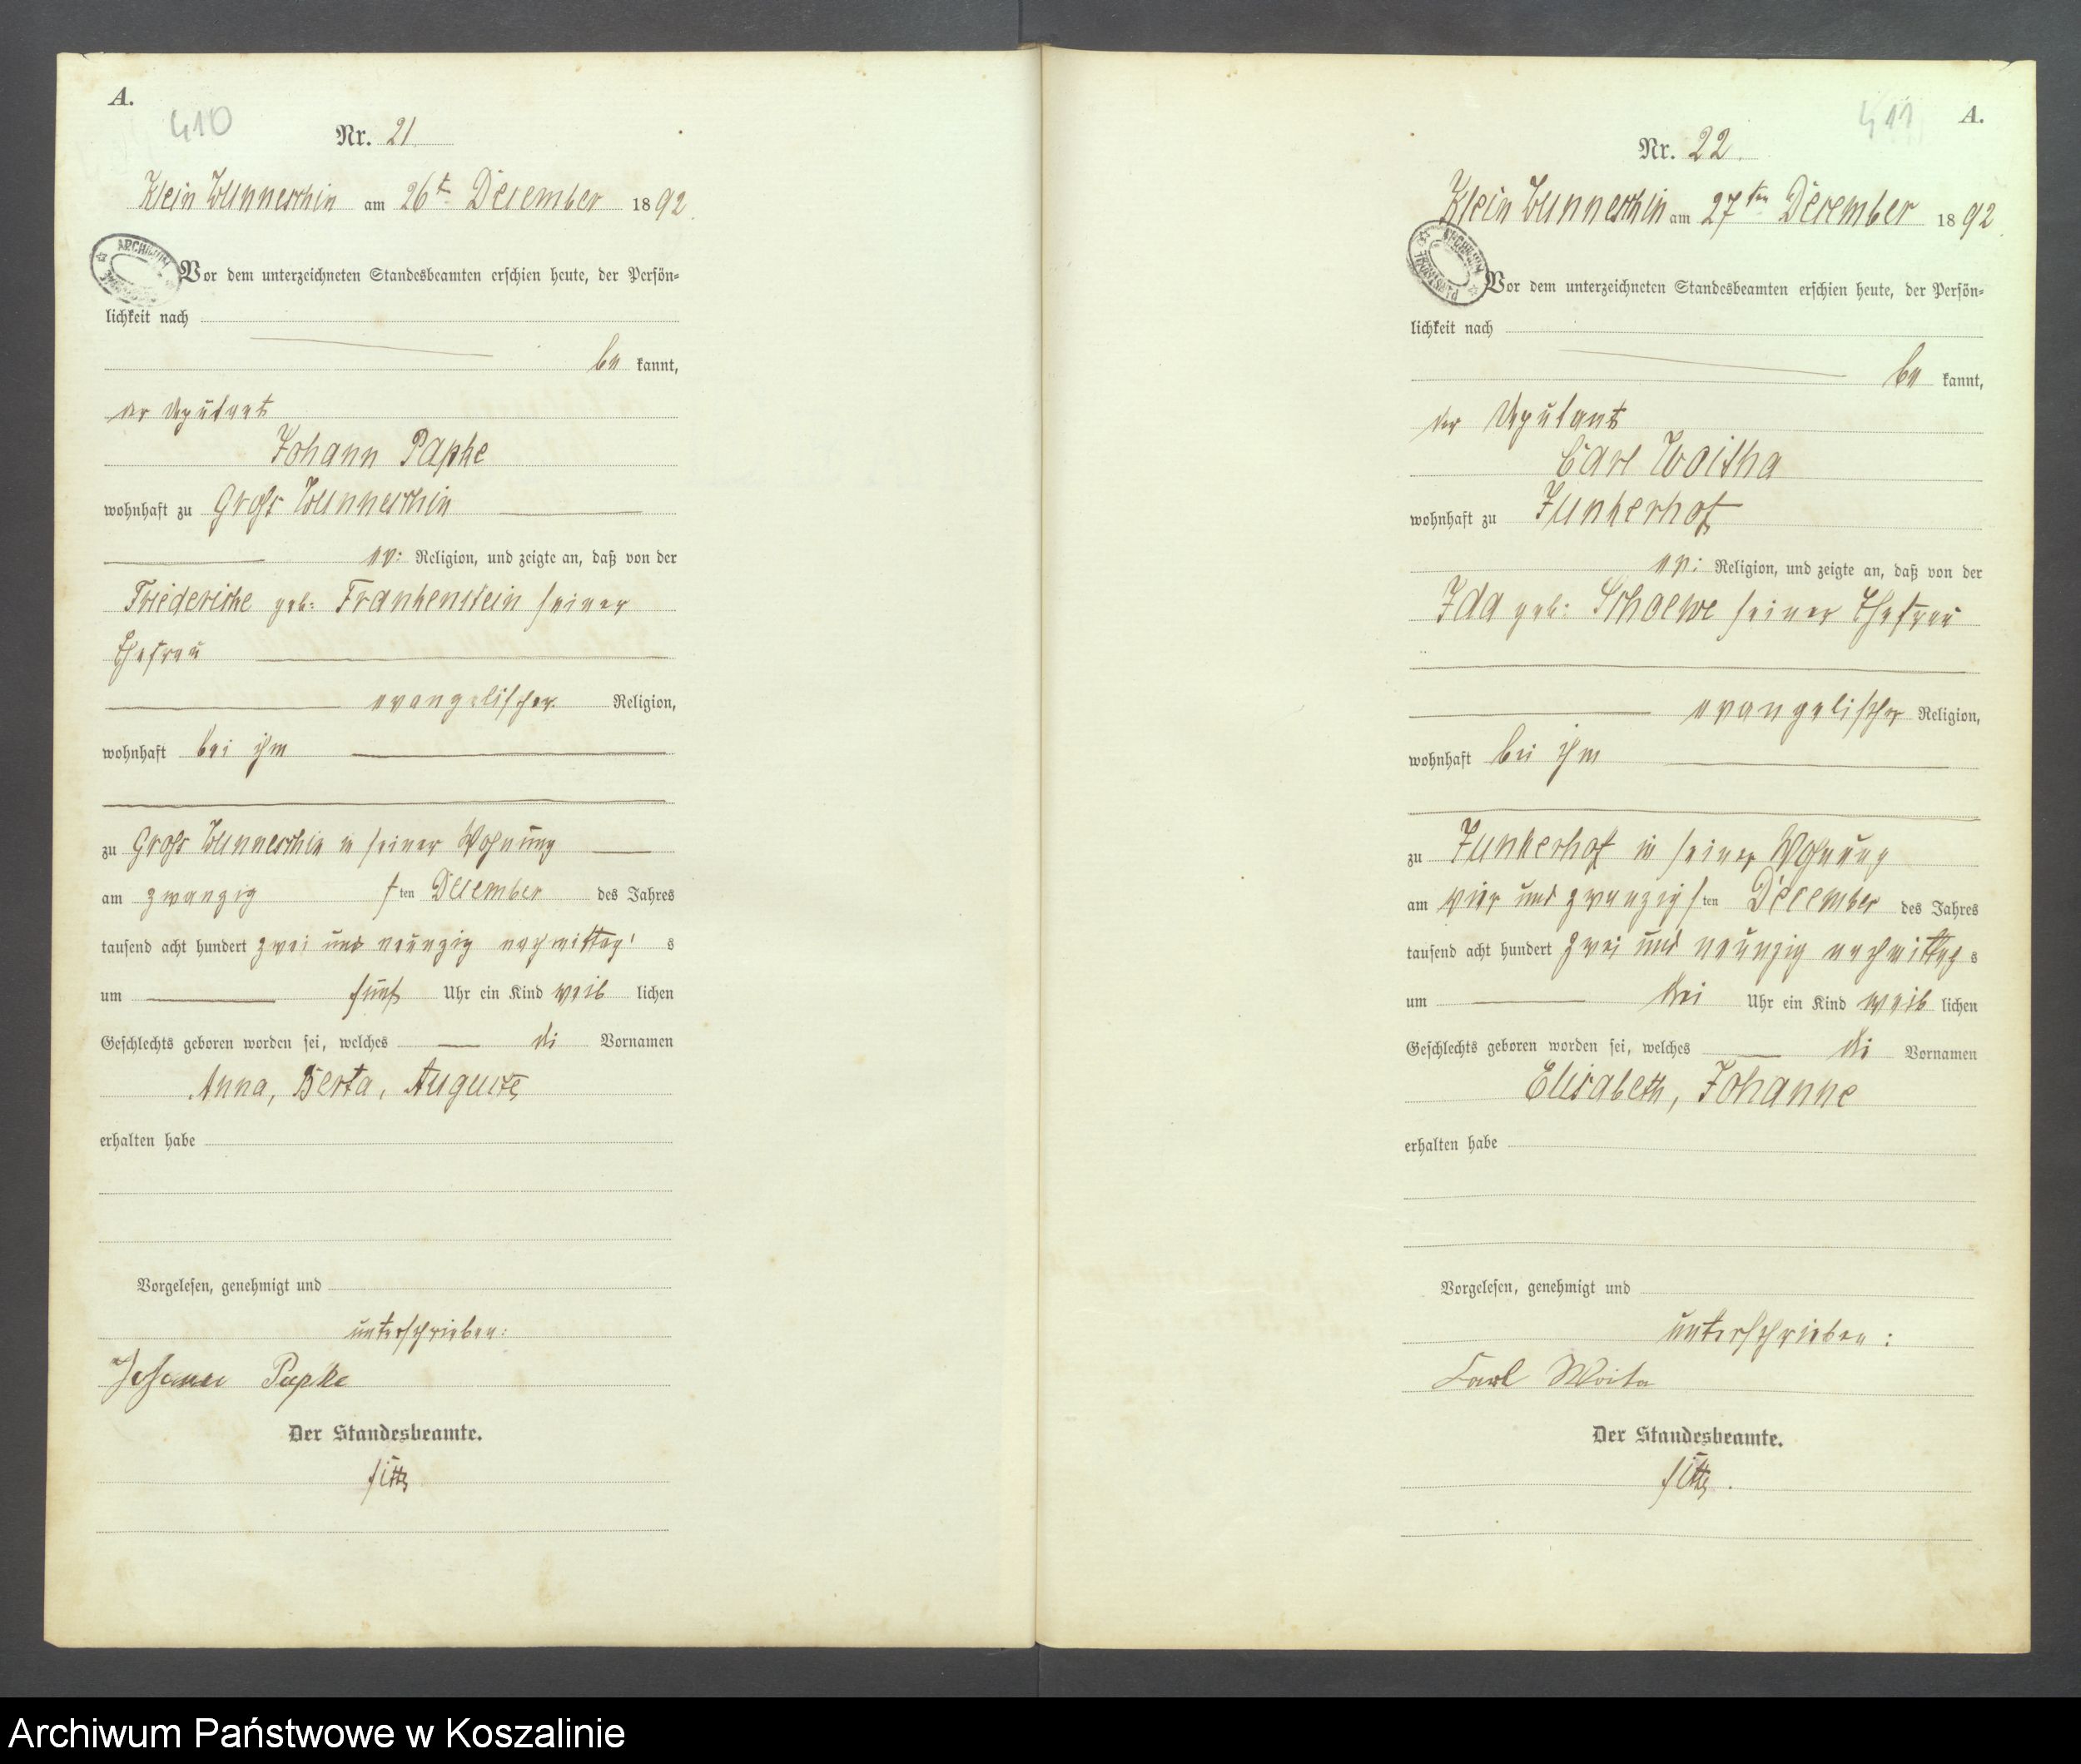 A.
410
Nr. 21
Klein Wunneschin am 26t Dezember 1892.
ARCHIWUM
Vor dem unterzeichneten Standesbeamten erschien heute, der Persön-
lichkeit nach
be kannt,
der Deputant
Johann Papke
wohnhaft zu Groß Wunneschin
ev: Religion, und zeigte an, daß von der
Friedericke geb: Frankenstein seiner
Ehefrau
evangelischer Religion,
wohnhaft bei ihm
zu Groß Wunneschin in seiner Wohnung
am zwanzigsten December des Jahres
tausend acht hundert zwei und neunzig nachmittags
um fünf Uhr ein Kind weiblichen
Geschlechts geboren worden sei, welches die Vornamen
Anna, Berta, Auguste
erhalten habe
Vorgelesen, genehmigt und
unterschrieben:
Johann Papke
Der Standesbeamte.
411
A.
Nr. 22.
Klein Wunneschin am 27ten December 1892.
ARCHIWUM
Vor dem unterzeichneten Standesbeamten erschien heute, der Persön-
lichkeit nach
be kannt,
der Deputant
Carl Woitha
wohnhaft zu Junkerhof
ev: Religion, und zeigte an, daß von der
Ida geb: Schoewe seiner Ehefrau
evangelischer Religion,
wohnhaft bei ihm
zu Junkerhof in seiner Wohnung
am vier und zwanzigsten December des Jahres
tausend acht hundert zwei und neunzig nachmittags
um drei Uhr ein Kind weiblichen
Geschlechts geboren worden sei, welches die Vornamen
Elisabeth, Johanne
erhalten habe
Vorgelesen, genehmigt und
unterschrieben:
Carl Woita
Der Standesbeamte.
Archiwum Państwowe w Koszalinie